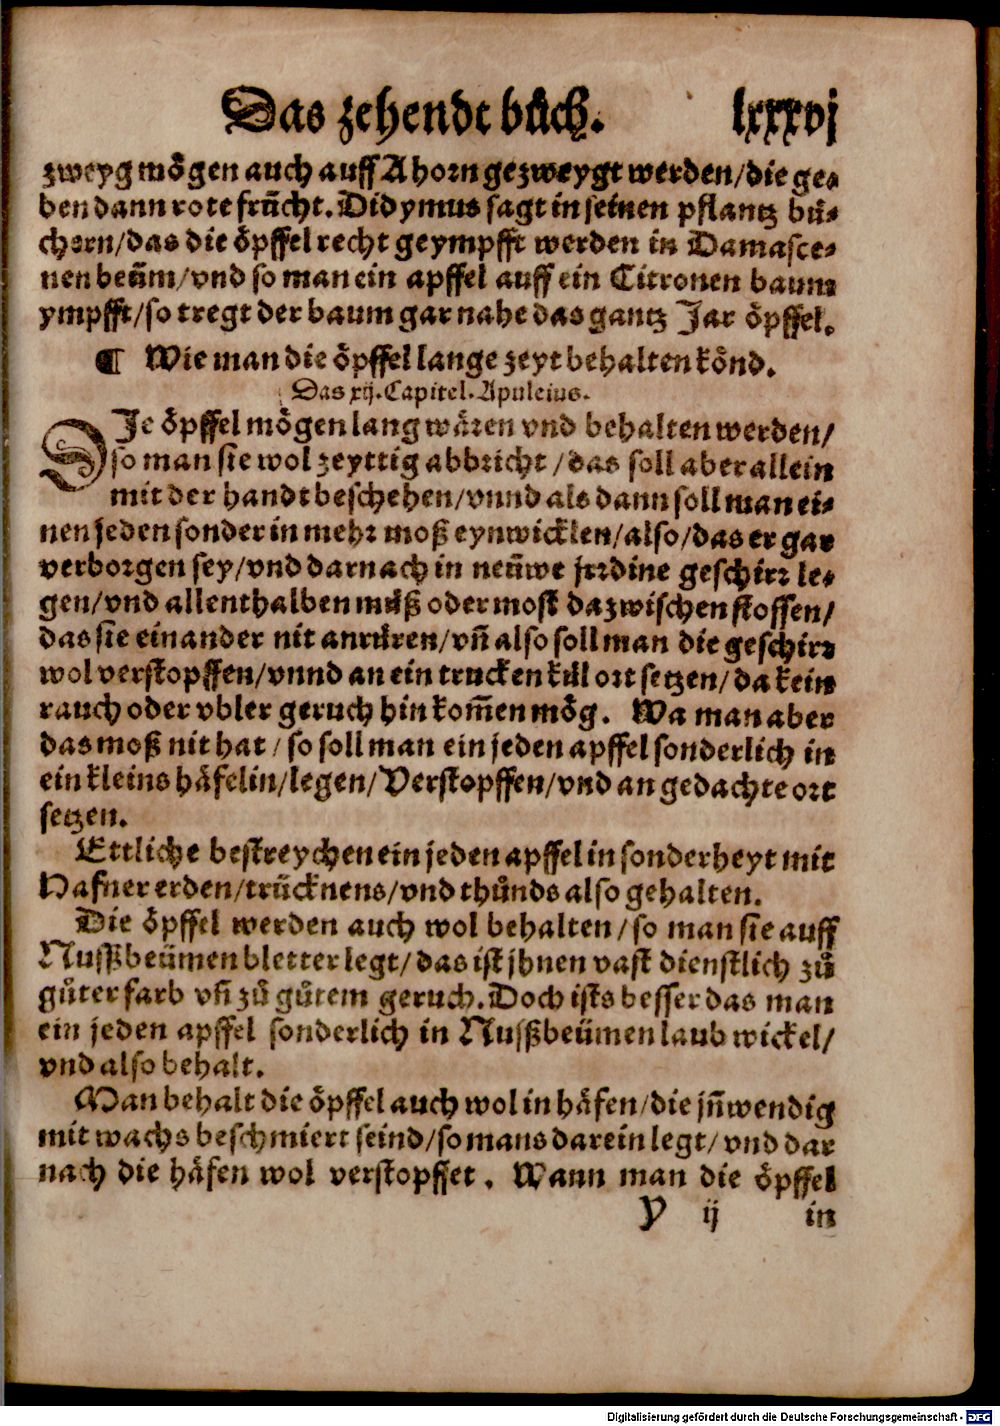 Das zehendt bůch. lxxxvj
zweyg mögen auch auff Ahorn gezweygt werden/die ge-
ben dann rote frücht. Didymus sagt in seinen pflantz bü-
chern/das die öpffel recht geympfft werden in Damasce-
nen beüm/vnd so man ein apffel auff ein Citronen baum
ympfft/so tregt der baum gar nahe das gantz Jar öpffel.
¶ Wie man die öpffel lange zeyt behalten könd.
Das xij. Capitel. Apuleius.
DJe öpffel mögen lang wären vnd behalten werden/
so man sie wol zeyttig abbricht/das soll aber allein
mit der handt beschehen/vnnd als dann soll man ei-
nen jeden sonder in mehr moß eynwicklen/also/das er gar
verborgen sey/vnd darnach in neüwe jrrdine geschirr le-
gen/vnd allenthalben müß oder most dazwischen stossen/
das sie einander nit anrüren/vñ also soll man die geschirr
wol verstopffen/vnnd an ein trucken kül ort setzen/da kein
rauch oder vbler geruch hin kom̃en mög. Wa man aber
das moß nit hat/so soll man ein jeden apffel sonderlich in
ein kleins häfelin/legen/Verstopffen/vnd an gedachte ort
setzen.
Ettliche bestreychen ein jeden apffel in sonderheyt mit
Hafner erden/trücknens/vnd thůnds also gehalten.
Die öpffel werden auch wol behalten/so man sie auff
Nussßbeümen bletter legt/das ist jhnen vast dienstlich zů
gůter farb vñ zů gůtem geruch. Doch ists besser das man
ein jeden apffel sonderlich in Nussßbeümen laub wickel/
vnd also behalt.
Man behalt die öpffel auch wol in häfen/die jñwendig
mit wachs beschmiert seind/so mans darein legt/vnd dar
nach die häfen wol verstopffet. Wann man die öpffel
Y ij in
Digitalisierung gefördert durch die Deutsche Forschungsgemeinschaft - DFG